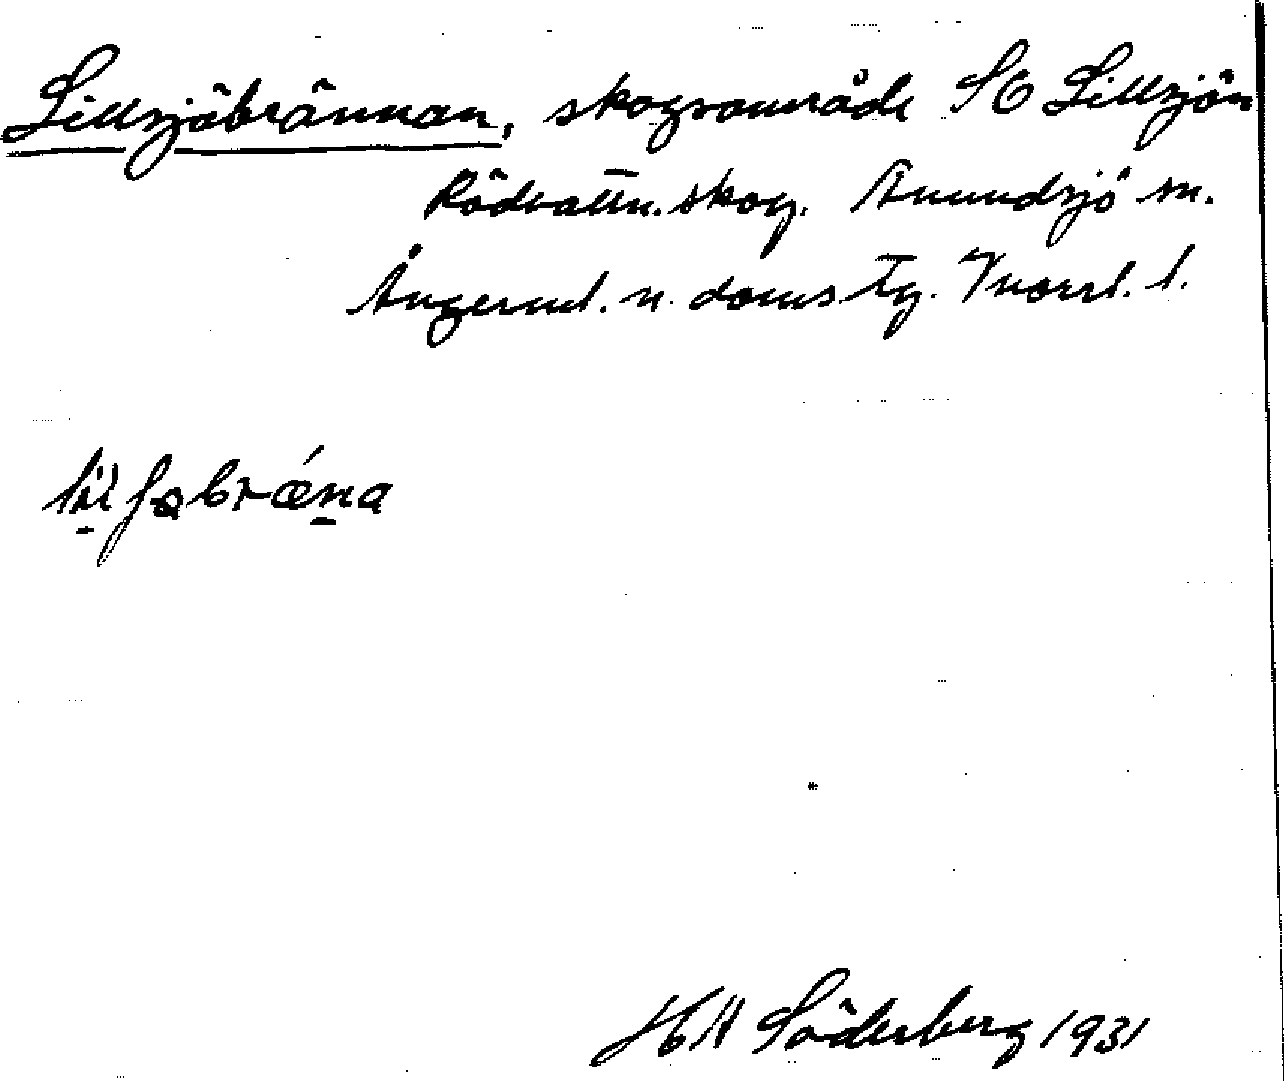 Lillsjöbrännan, skogsområde SO Lillsjön
Rödvattn. skog. Anundsjö sn.
Ångerml. n. doms tg. Vnorrl. l.
Söderberg 1931